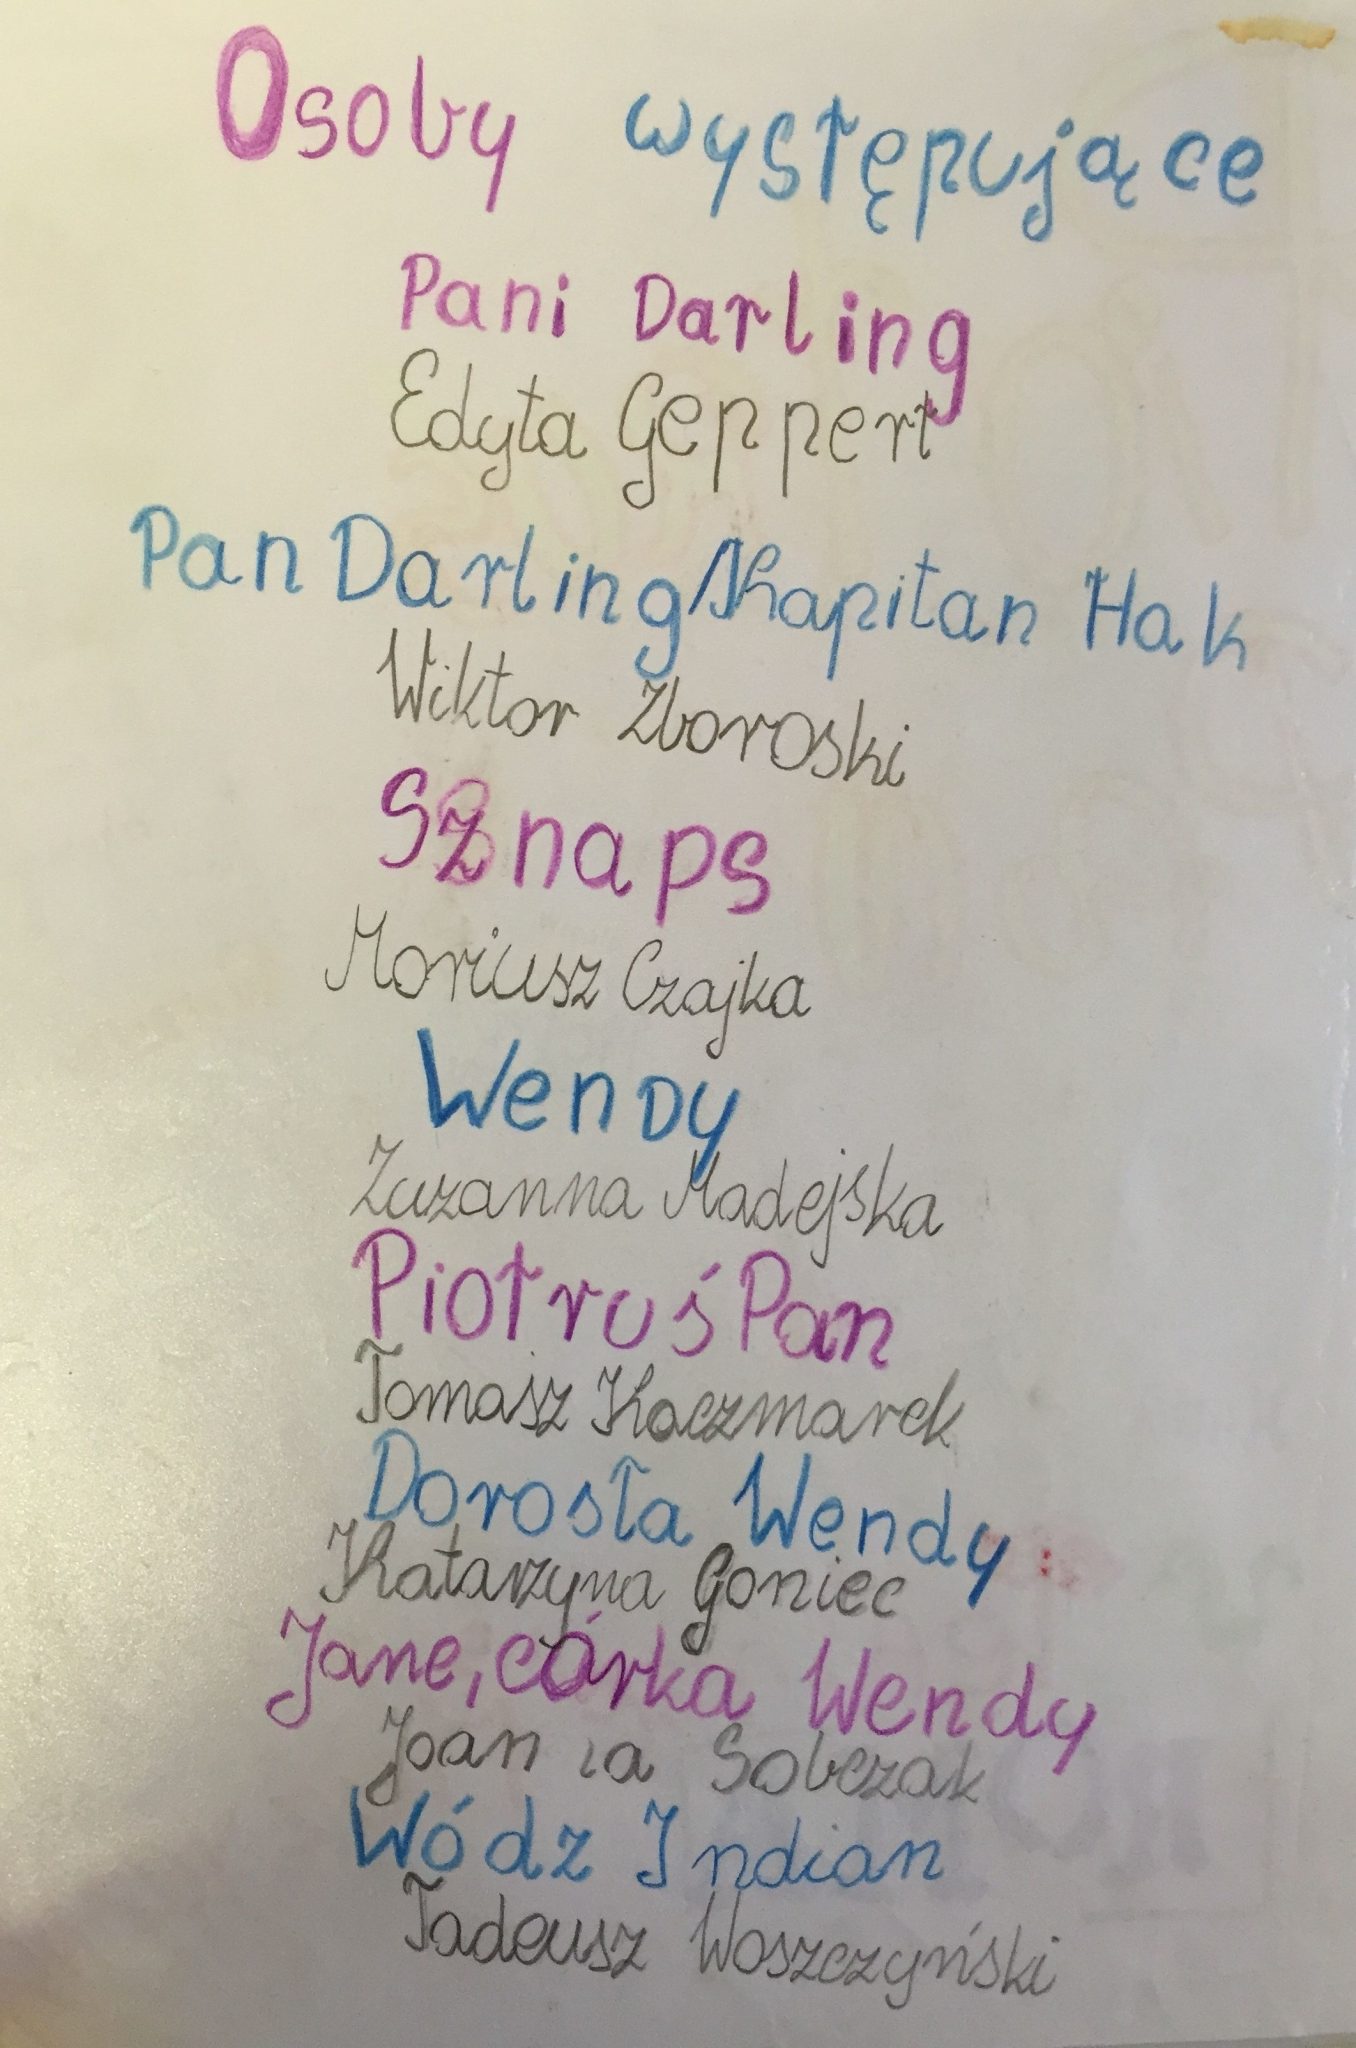 Osoby występujące
Pani Darling
Edyta Geppert
Pan Darling/Kapitan Hak
Wiktor Zboroski
Sznaps
Moriusz Czajka
Wendy
Zuzanna Madejska
Piotruś Pan
Tomasz Kaczmarek
Dorosła Wendy
Katarzyna Goniec
Jane, córka Wendy
Joan ia Sobczak
Wódz Indian
Tadeusz Woszczyński